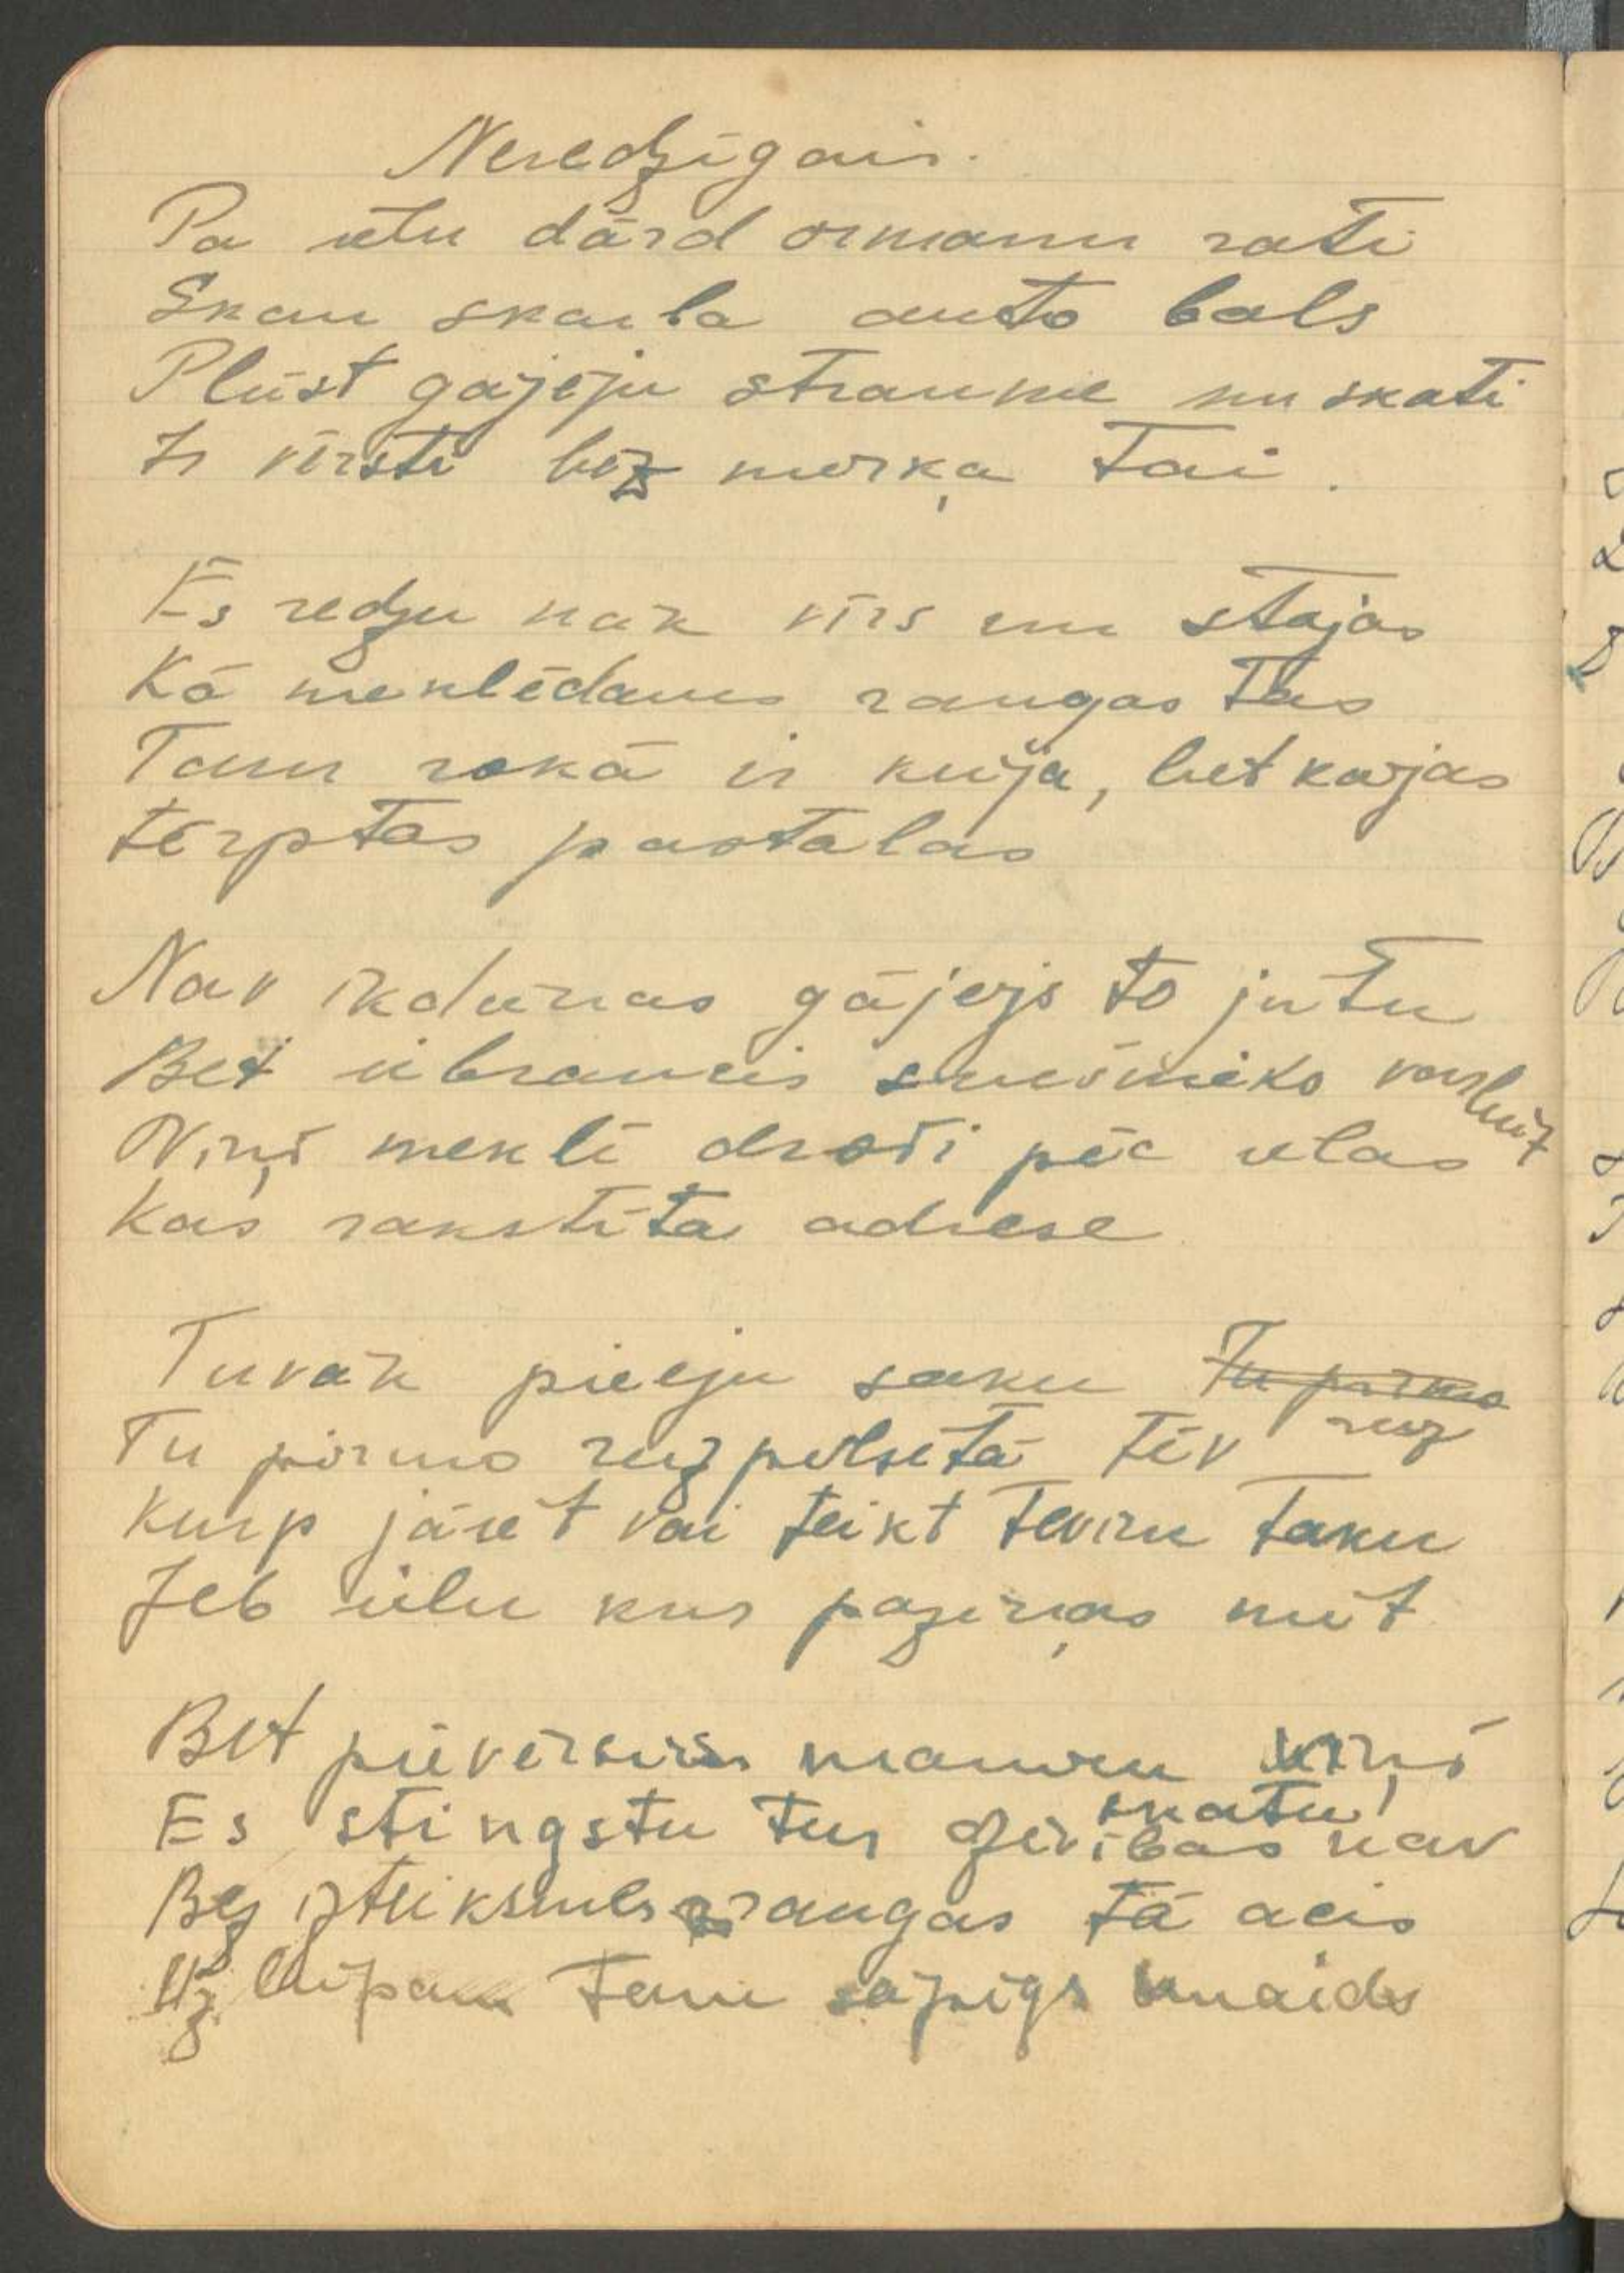 Neredzīgais.
Pa ielu dārd ormaņu rati
Skan skaļa auto bals
Plūst gājēju straume un skati
Ir vērsti bez mērķa tai.
Es redzu nāk vīrs un stājas
Kā meklēdams raugas tas
Tam rokā ir kūja, bet kājas
tērptas pastalas
Nav ikdienas gājējs to jutu
Bet iebraucis
Viņš meklē droši pēc ielas
Kas rakstīta adrese
Tuvāk pieeju saku Tu pirmo
reiz
Tu pirmo reiz pilsētā tēv
Kurp jāiet vai teikt tevim taku
Jeb ielu kur paziņas mīt
Bet pievērsis manim viņš
skatu
Es stingstu tur dzīvības nav
Bez izteiksmes raugas tā acis
Uz lūpam tam sāpīgs smaids